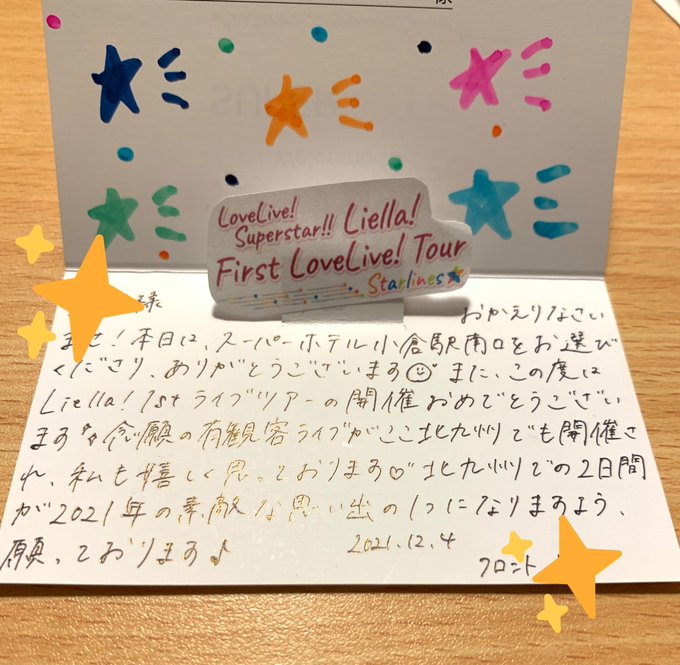 様
LoveLive!
Superstar!! Liella!
First LoveLive! Tour
Starlines
様
おかえりなさい
ませ！本日は、スーパーホテル小倉駅南口をお選び
くださり、ありがとうございます また、この度は
Liella! 1stライブツアーの開催おめでとうござい
ます☆念願の有観客ライブがここ北九州でも開催さ
れ、私も嬉しく思っております♡北九州での2日間
が2021年の素敵な思い出の1つになりますよう、
願っております♪
2021.12.4
フロント